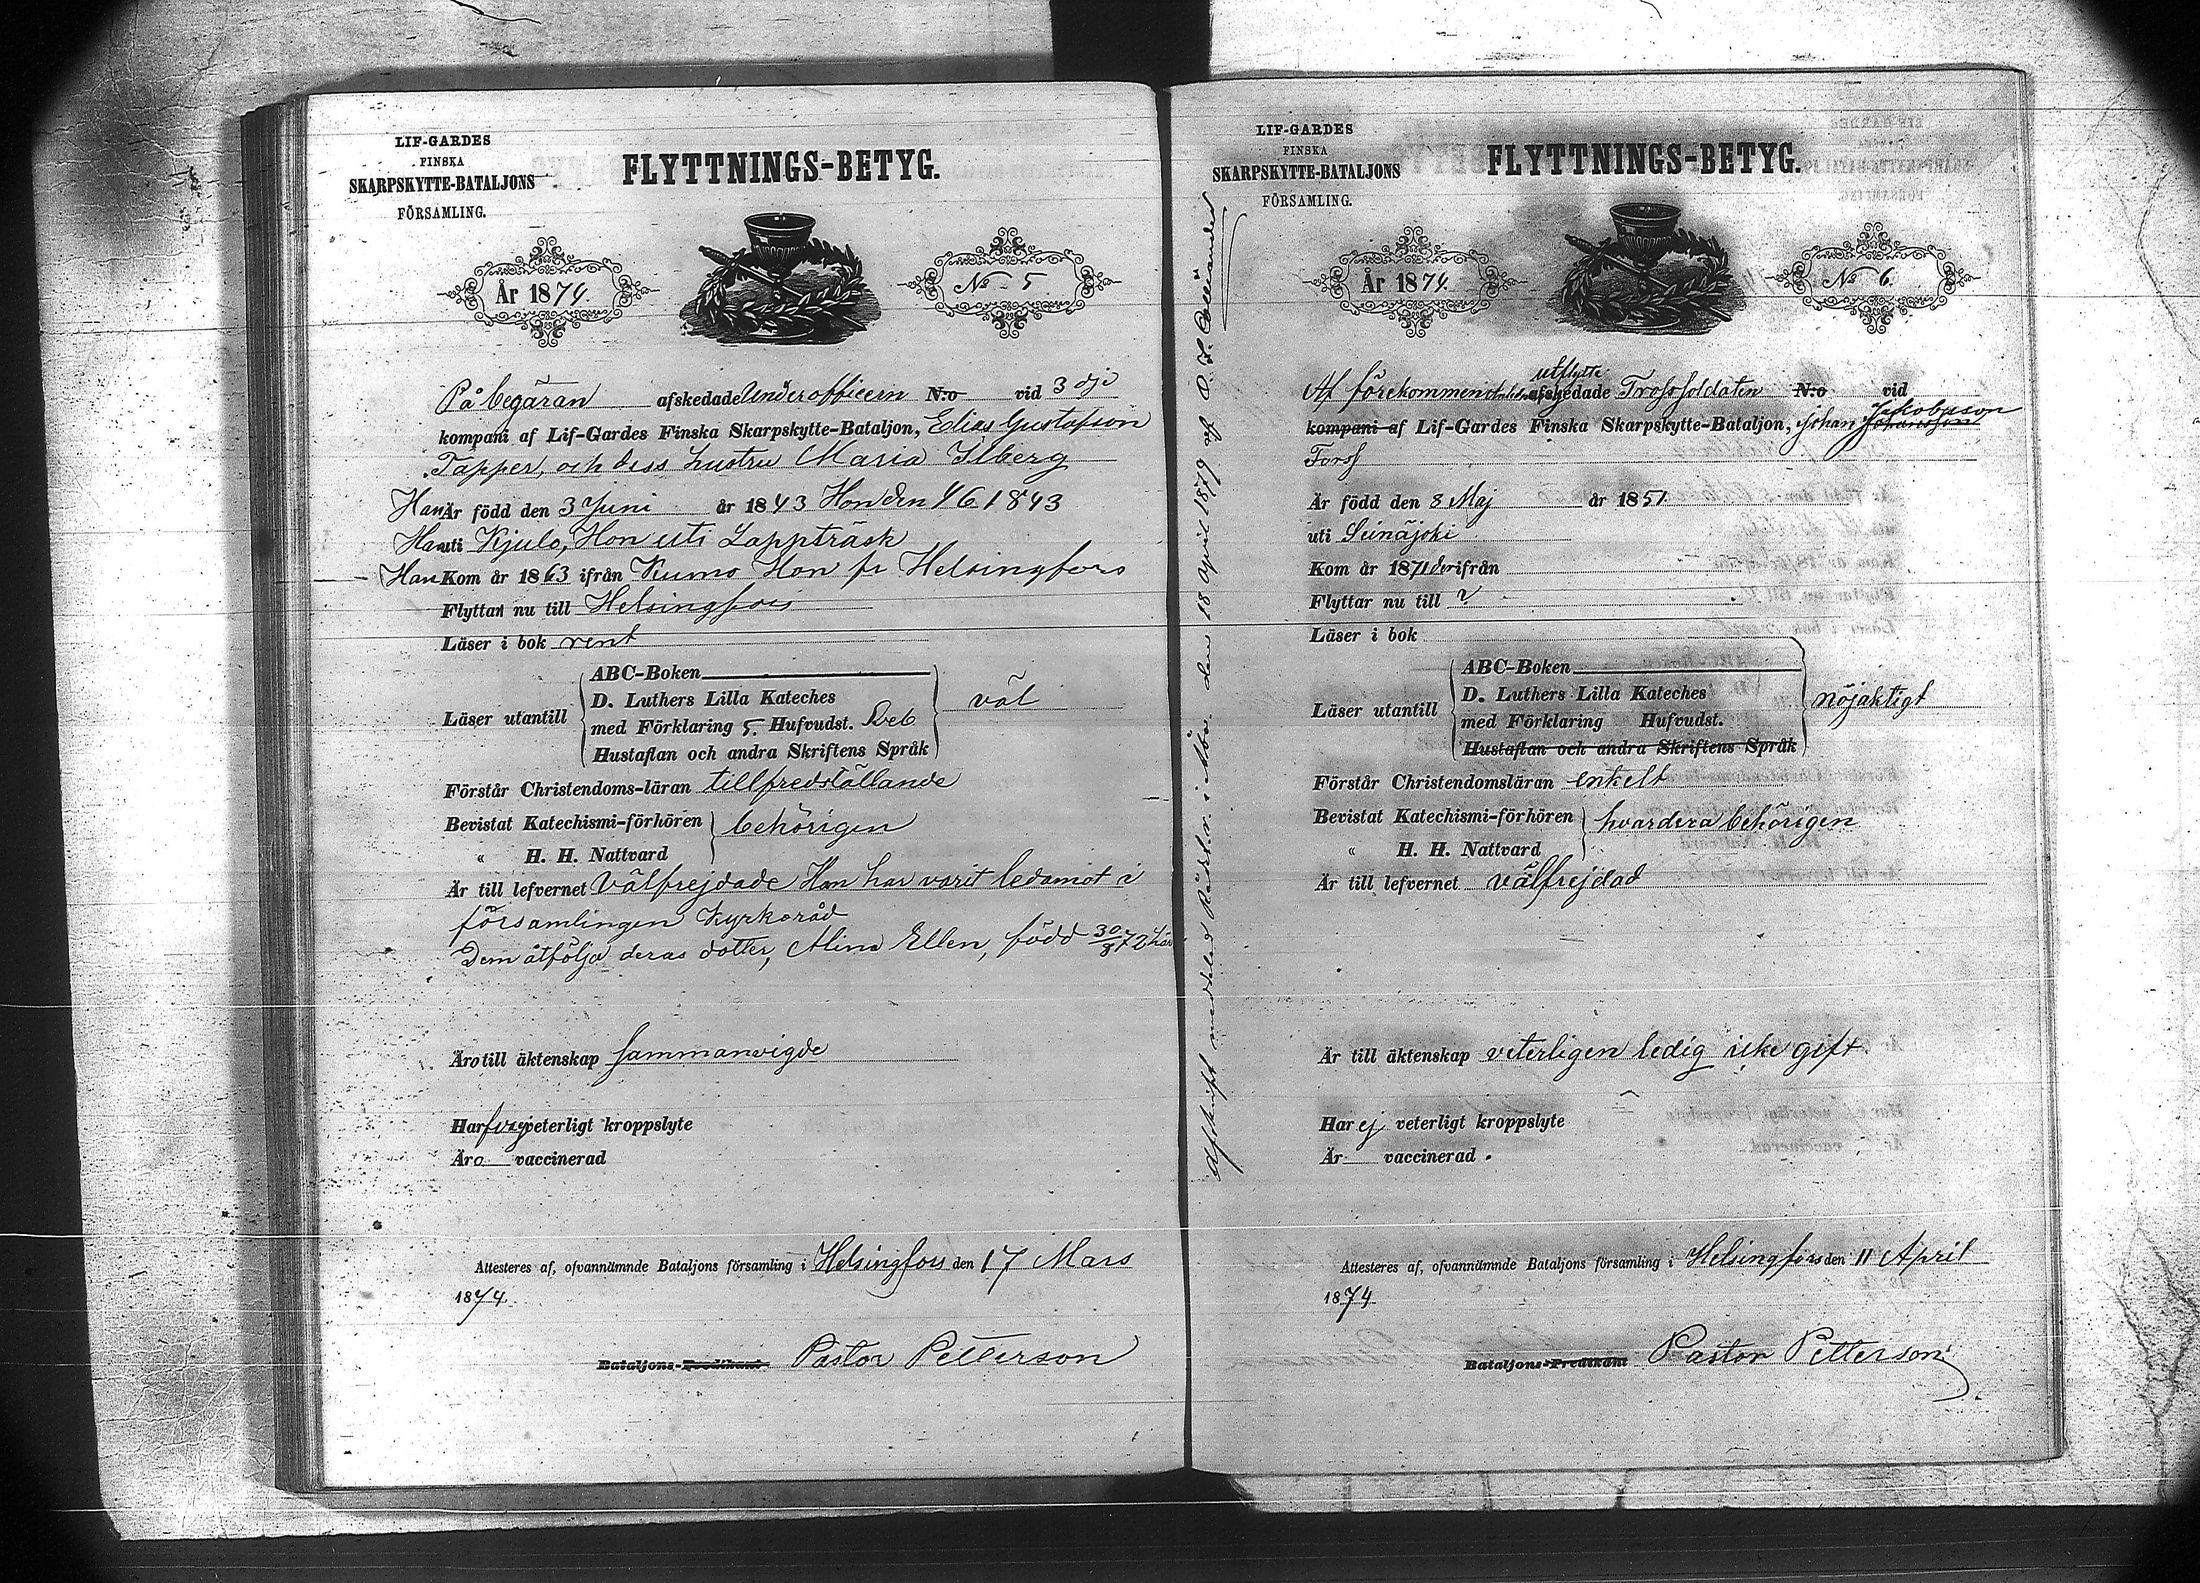 LIF-GARDES
FINSKA
SKARPSKYTTE-BATALJONS
FÖRSAMLING.
FLYTTNINGS-BETYG.
År 1874.
No 5.
På begäran afskedade Underofficern N:o vid 3 dje
kompani af Lif-Gardes Finska Skarpskytte-Bataljon, Elias Gustafsson
Tapper, och dess hustru Maria Ilberg
Han Är född den 3 Juni år 1843 Hon den 4 6 1843
Han uti Kjulo, Hon uti Lappträsk
Han Kom år 1863 ifrån Kumo Hon fr Helsingfors
Flyttar nu till Helsingfors
Läser i bok rent
ABC-Boken
D. Luthers Lilla Kateches
Läser utantill med Förklaring 5. Hufvudst. väl
Hustaflan och andra Skriftens Språk
Förstår Christendoms-läran tillfredställande
Bevistat Katechismi-förhören behörigen
« H. H. Nattvard
Är till lefvernet Välfrejdade Han har varit ledamot i
församlingen Kyrkoråd
Dem åtfölja deras dotter, Alina Ellen, född 30/8 72 här
Äro till äktenskap sammanvigde
Har veterligt kroppslyte
Äro vaccinerad
Attesteres af, ofvannämnde Bataljons församling i Helsingfors den 17 Mars
1874.
Bataljons-Predikant Pastor Petterson
Afskrift meddelad i Åbo den 18 april 1879 af
LIF-GARDES
FINSKA
SKARPSKYTTE-BATALJONS
FÖRSAMLING.
FLYTTNINGS-BETYG.
År 1874.
No 6.
utflytte
Af förekommen afskedade Trossoldaten N:o vid
Jakobsson
kompani af Lif-Gardes Finska Skarpskytte-Bataljon, Johan Johansson
Forss
Är född den 8 Maj år 1851
uti Seinäjoki
Kom år 1871 ifrån
Flyttar nu till ?
Läser i bok
ABC-Boken
D. Luthers Lilla Kateches
Läser utantill med Förklaring Hufvudst. nöjaktigt
Hustaflan och andra Skriftens Språk
Förstår Christendomsläran enkelt
Bevistat Katechismi-förhören hvardera behörigen
« H. H. Nattvard
Är till lefvernet välfrejdad
Är till äktenskap veterligen ledig icke gift.
Har ej veterligt kroppslyte
Är vaccinerad.
Attesteres af, ofvannämnde Bataljons församling i Helsingfors den 11 April
1874
Bataljons-Predikant Pastor Petterson